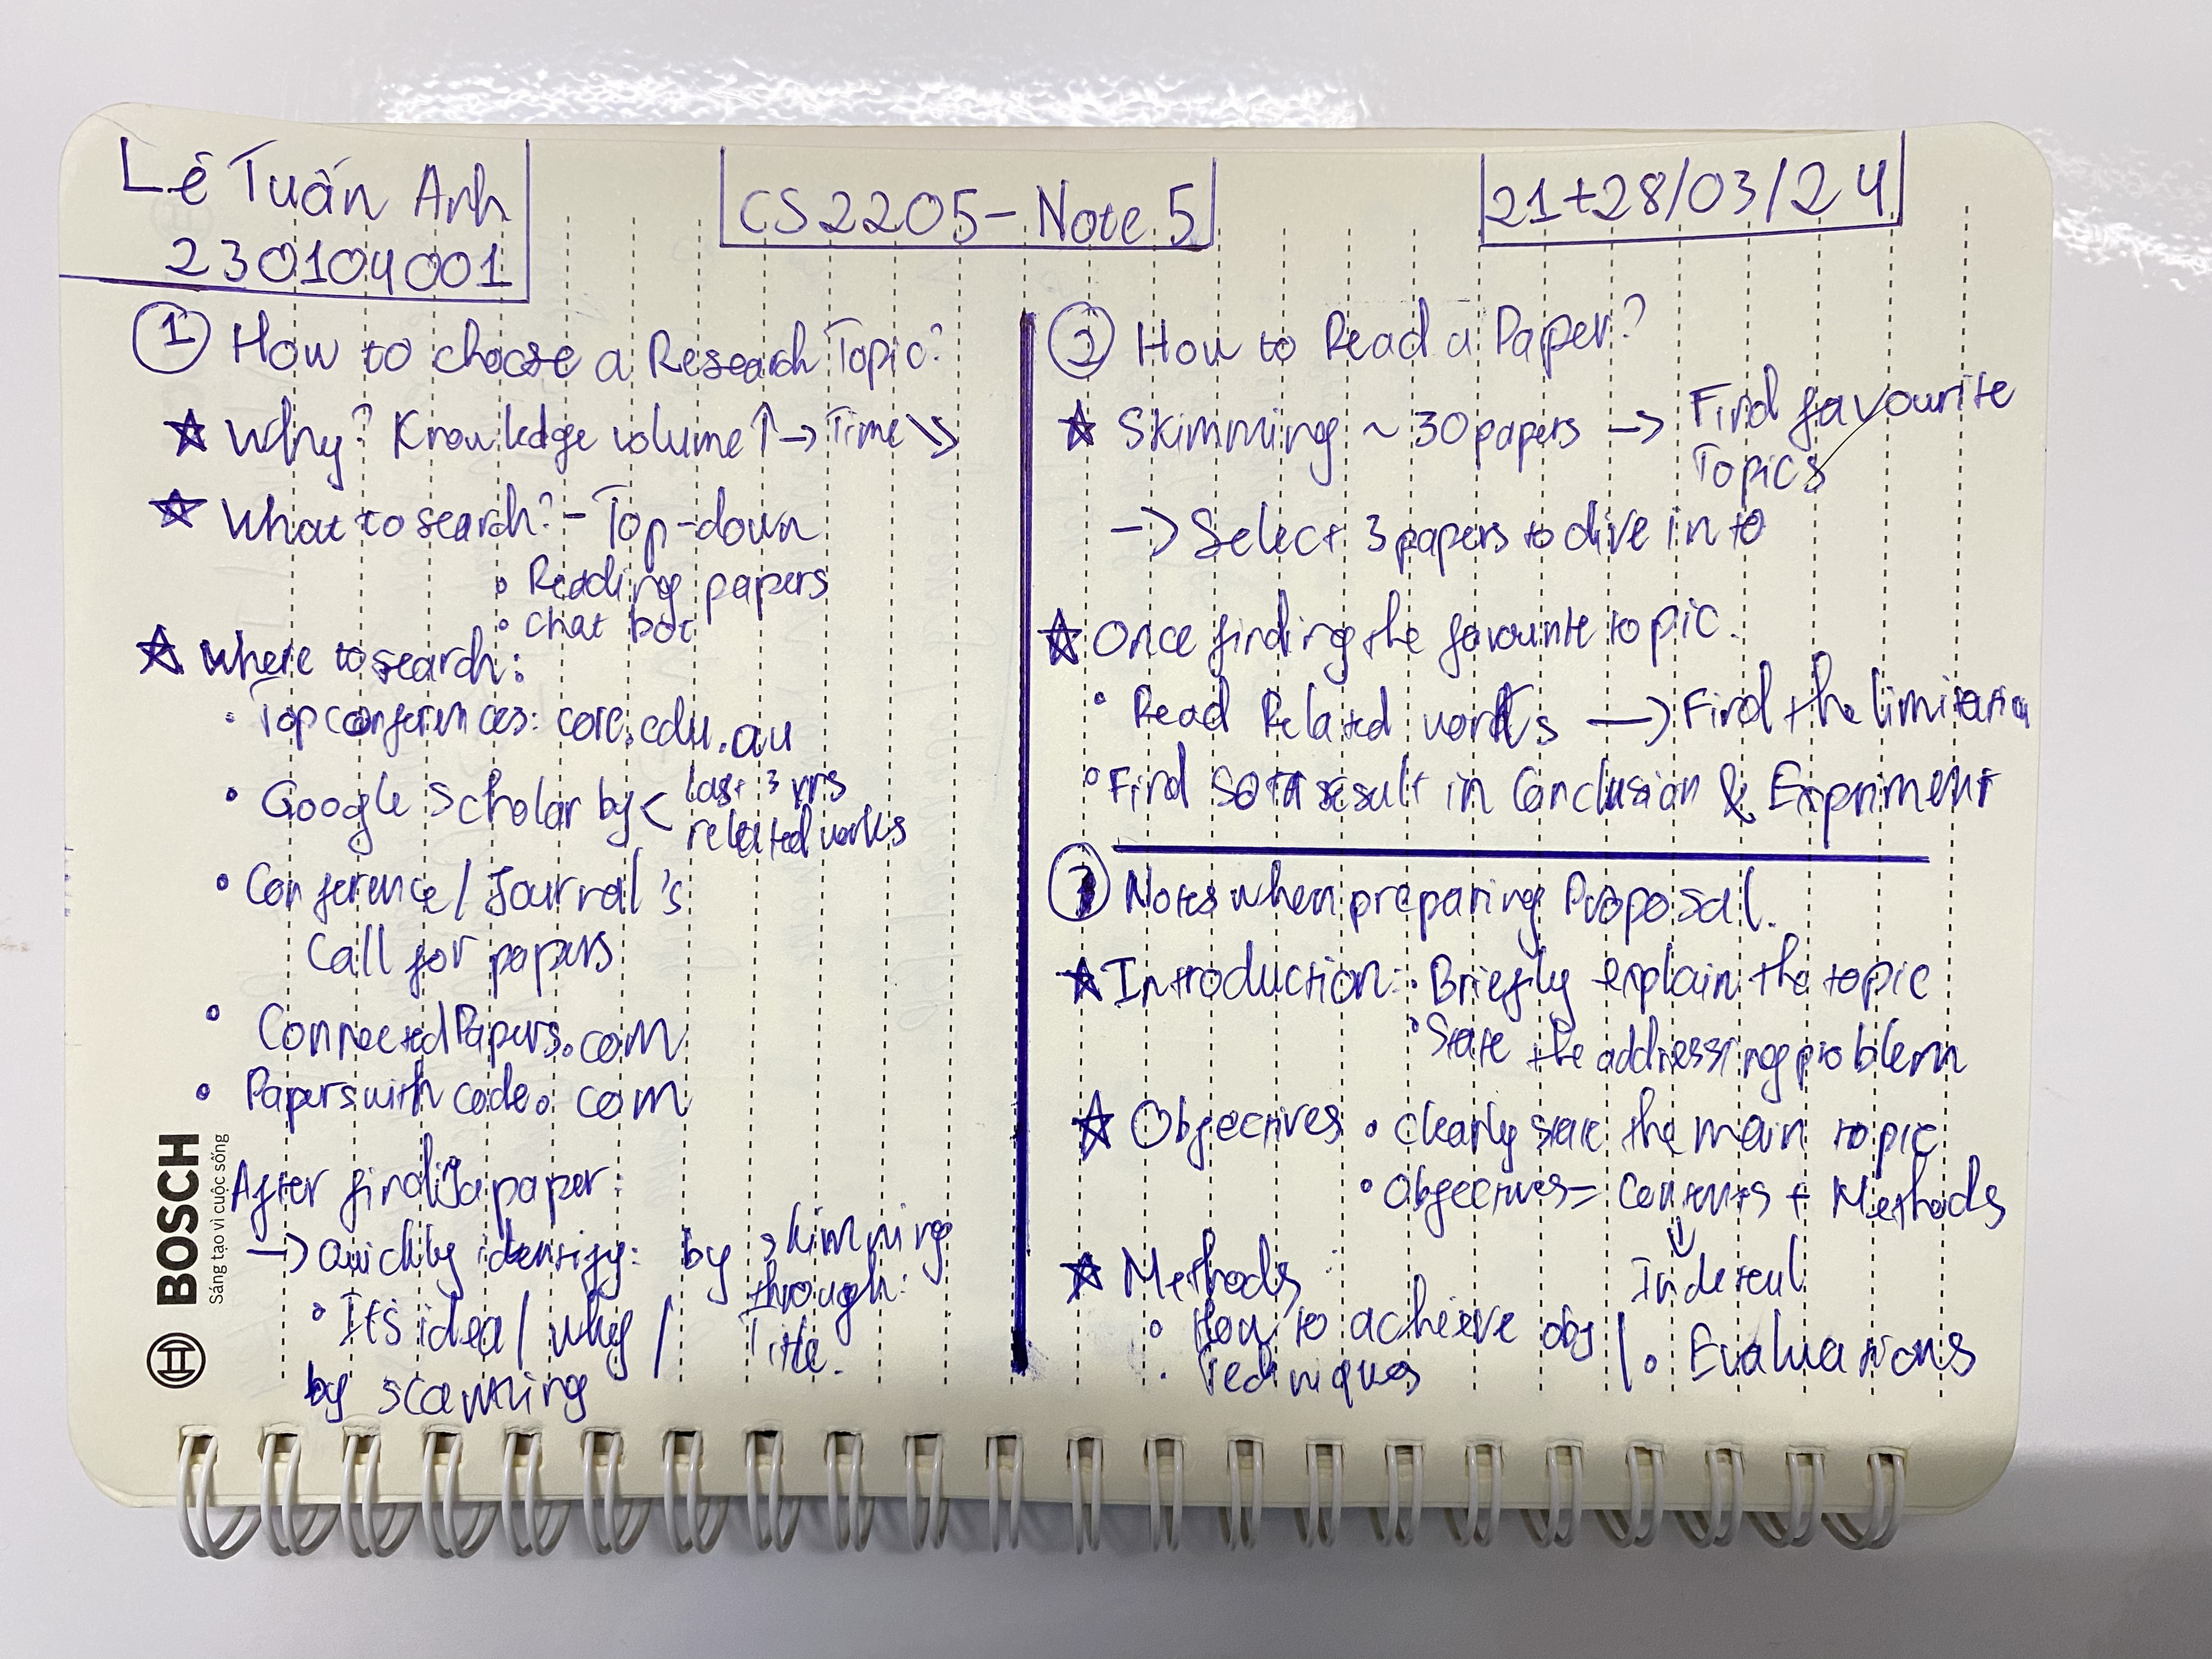 Lê Tuấn Anh
230104001
CS2205 - Note 5
21+28/03/24
① How to choose a Research Topic?
☆ Why? Knowledge volume ↑ → Time ↘
☆ What to search? - Top-down
• Reading papers
• Chat bot
☆ Where to search:
• Top conferences: core.edu.au
• Google Scholar by < last 3 yrs
related works
• Conference / Journal's
Call for papers
• ConnectedPapers.com
• Paperswithcode.com
After finding a paper:
→ Quickly identify: by skimming
through:
• It's idea / why / Title.
by scanning
② How to Read a Paper?
☆ Skimming ~ 30 papers → Find favourite
Topics
→ Select 3 papers to dive in to
☆ Once finding the favourite topic.
• Read Related works → Find the limitation
• Find SOTA result in Conclusion & Expriment
③ Notes when preparing Proposal.
☆ Introduction: • Briefly explain the topic
• State the addressing problem
☆ Objectives • Clearly state the main topic
• Objectives = Contents + Methods
↓
In detail
☆ Methods:
• How to achieve obj | • Evaluations
• Techniques
BOSCH
Sáng tạo vì cuộc sống